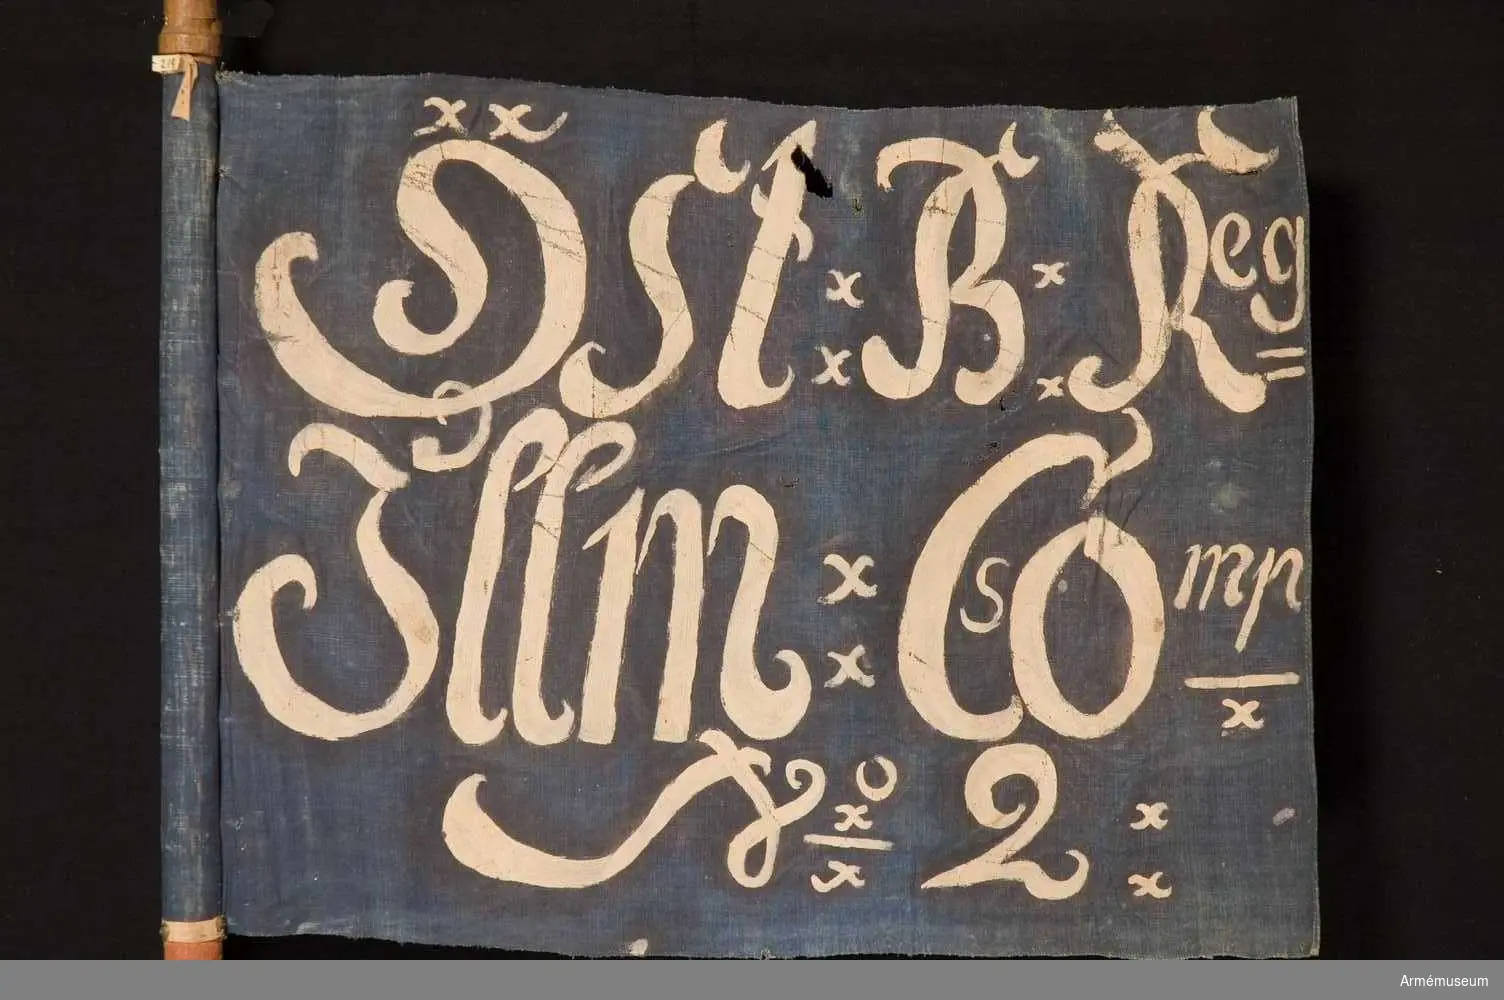 Öst : B : Reg =
Jllm : Co s mp
No 2 :
Armémuseum